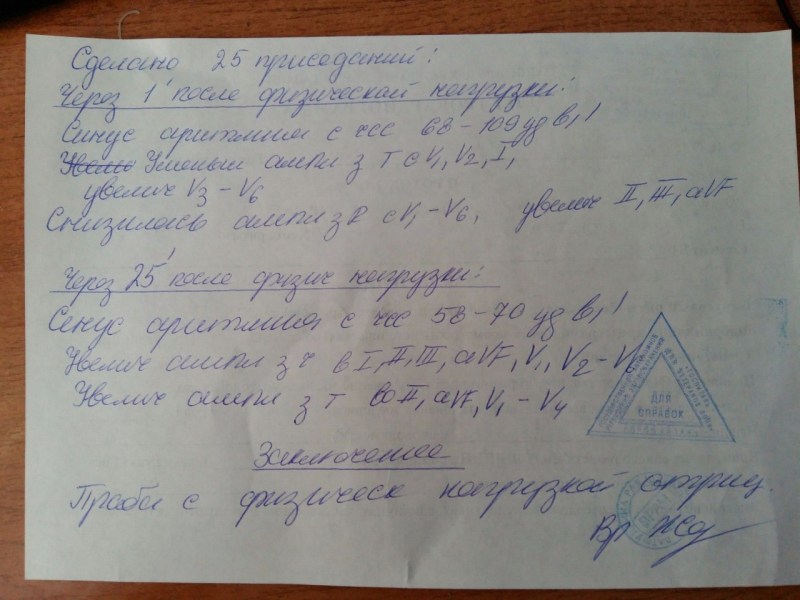 Сделано 25 приседаний:
Через 1' после физической нагрузки:
Синус аритмия с чсс 68-109 уд в 1'
Уменьш ампл з T с V1, V2, I,
увелич V3 - V6
Снизилась ампл з R с V1 - V6, увелич II, III, aVF
Через 25' после физич нагрузки:
Синус аритмия с чсс 58-70 уд в 1'
Увелич ампл з ч в I, II, III, aVF, V1, V2 - V6
Увелич ампл з T во II, aVF, V1 - V4
ДЛЯ
СПРАВОК
Заключение
Проба с физическ нагрузкой отриц.
Вр